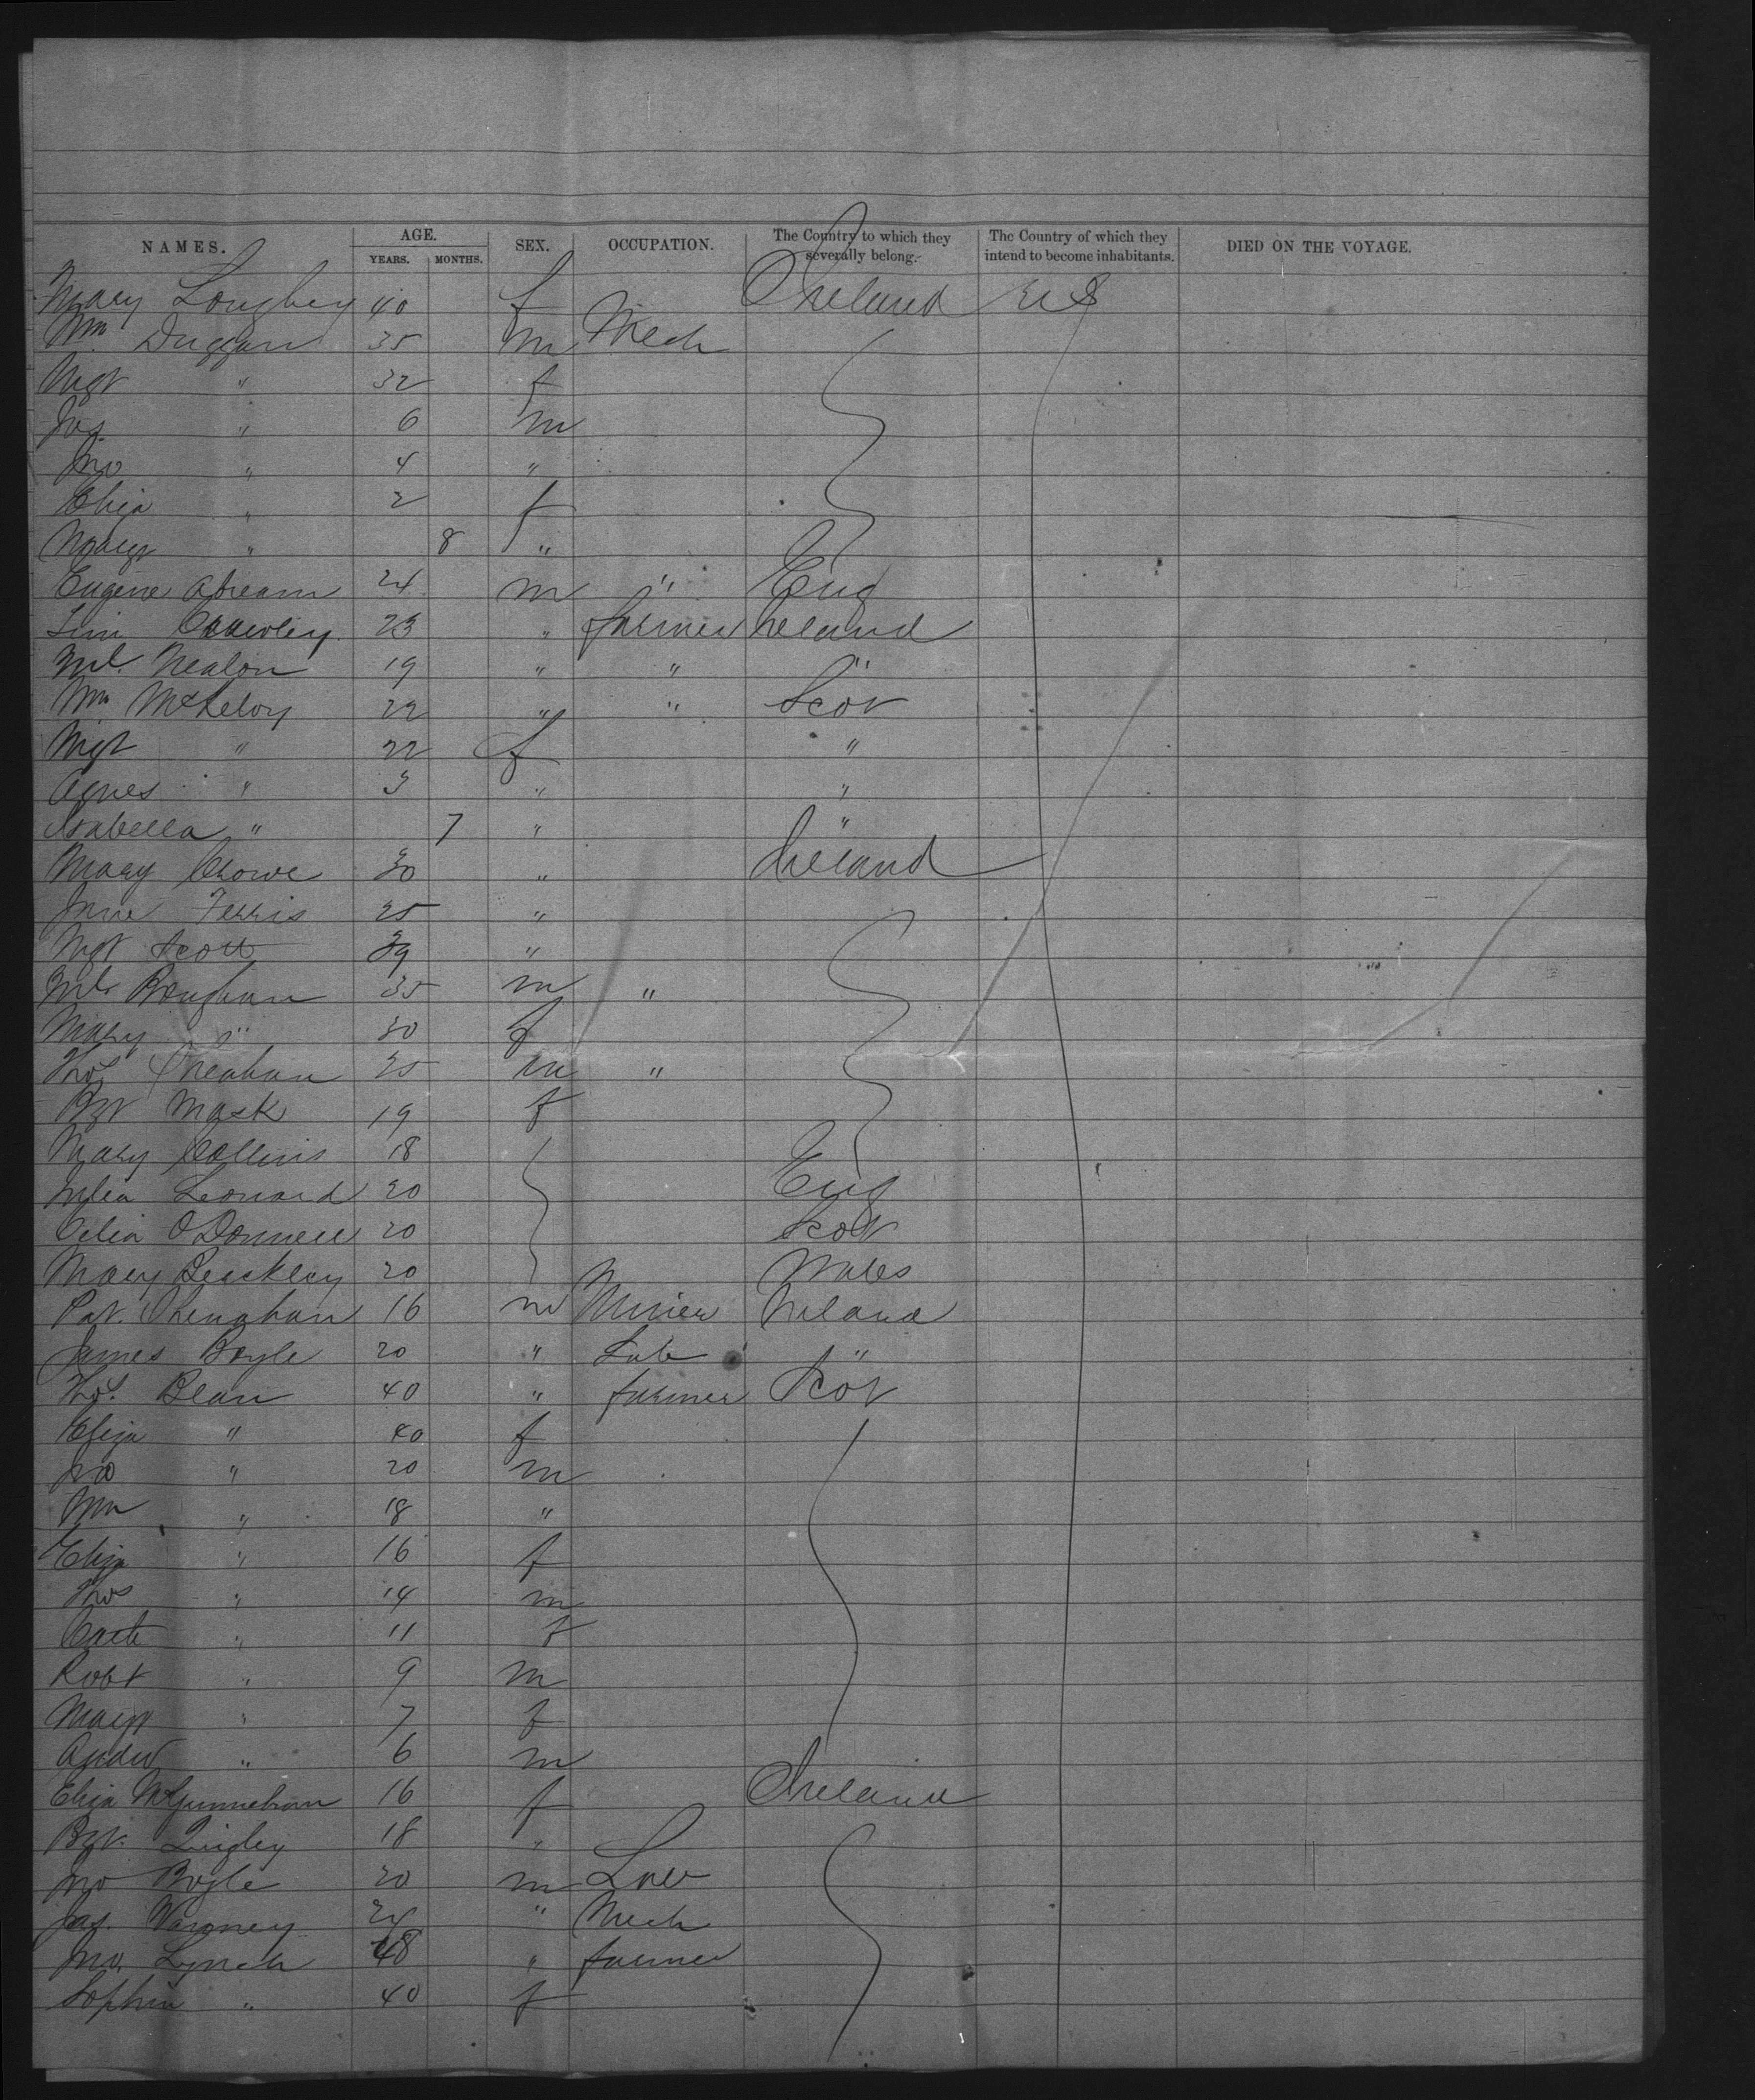 NAMES. AGE. SEX. OCCUPATION. The Country to which they severally belong. The Country of which they intend to become inhabitants. DIED ON THE VOYAGE.
YEARS. MONTHS.
Mary 40 f Ireland U S
Wm Duggan 35 m Mech
Mgt " 32 f
Jas. " 6 m
Jno " 4 "
Eliza " 2 f
Margt " 8 "
Eugene 24 m " Eng
23 " farmer Ireland
Ml. Nealon 19 " " "
Wm McKeloy 22 " " Scot
Mgt " 22 f "
Agnes " 3 " "
Isabella " 7 " "
Mary Crowe 30 " Ireland
Jane Ferris 25 "
Mgt Scott "
Ml. 35 m "
Mary " 30 f
Thos 25 m "
Bgt Mask 19 f
Mary Collins 18
Leonard 20 Eng
Celia O'Donnell 20 Scot
Mary 20 Wales
Pat. 16 m Miner Ireland
James Boyle 20 " Lab "
Thos. Bean 40 " farmer Scot
Eliza " 40 f
Jno " 20 m
Wm " 18 "
Eliza " 16 f
Thos " 14 m
Cath " 11 f
Robt " 9 m
Margt " 7 f
Andw " 6 m
Eliza 16 f Ireland
Bgt. Quigley 18 "
Jno Boyle 20 m Lab
Jas. 24 " Mech
Jno. Lynch 48 " farmer
Sophia " 40 f